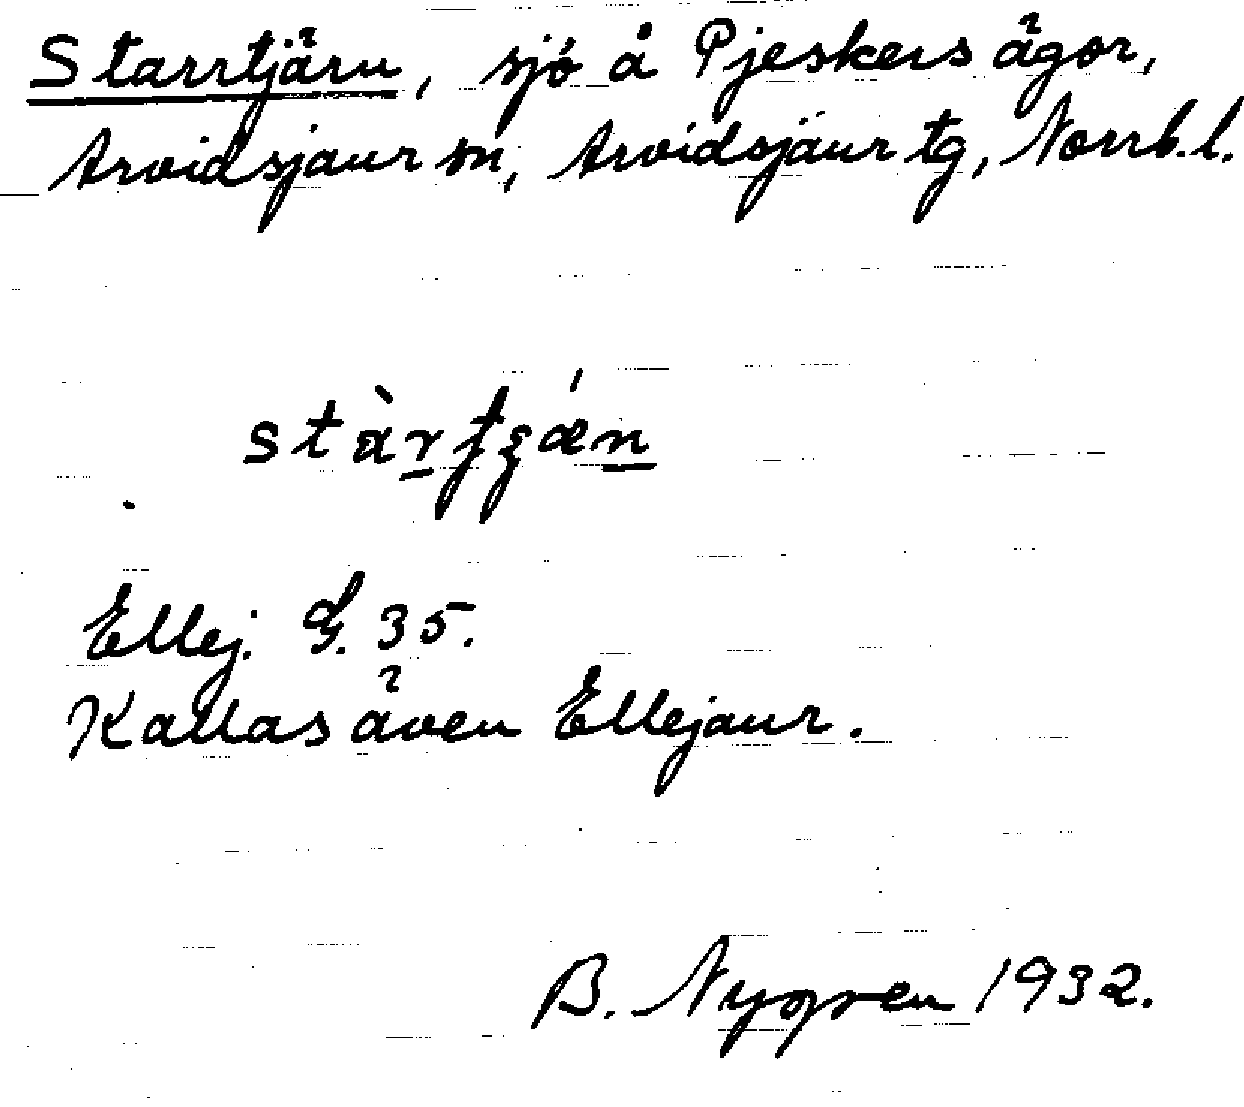 Starrtjärn, sjö å Pjeskers ägor,
Arvidsjaur sn, Arvidsjaur tg, Norrb.l.
Ellej. G. 35.
Kallas även Ellejaur.
B. Nygren 1932.